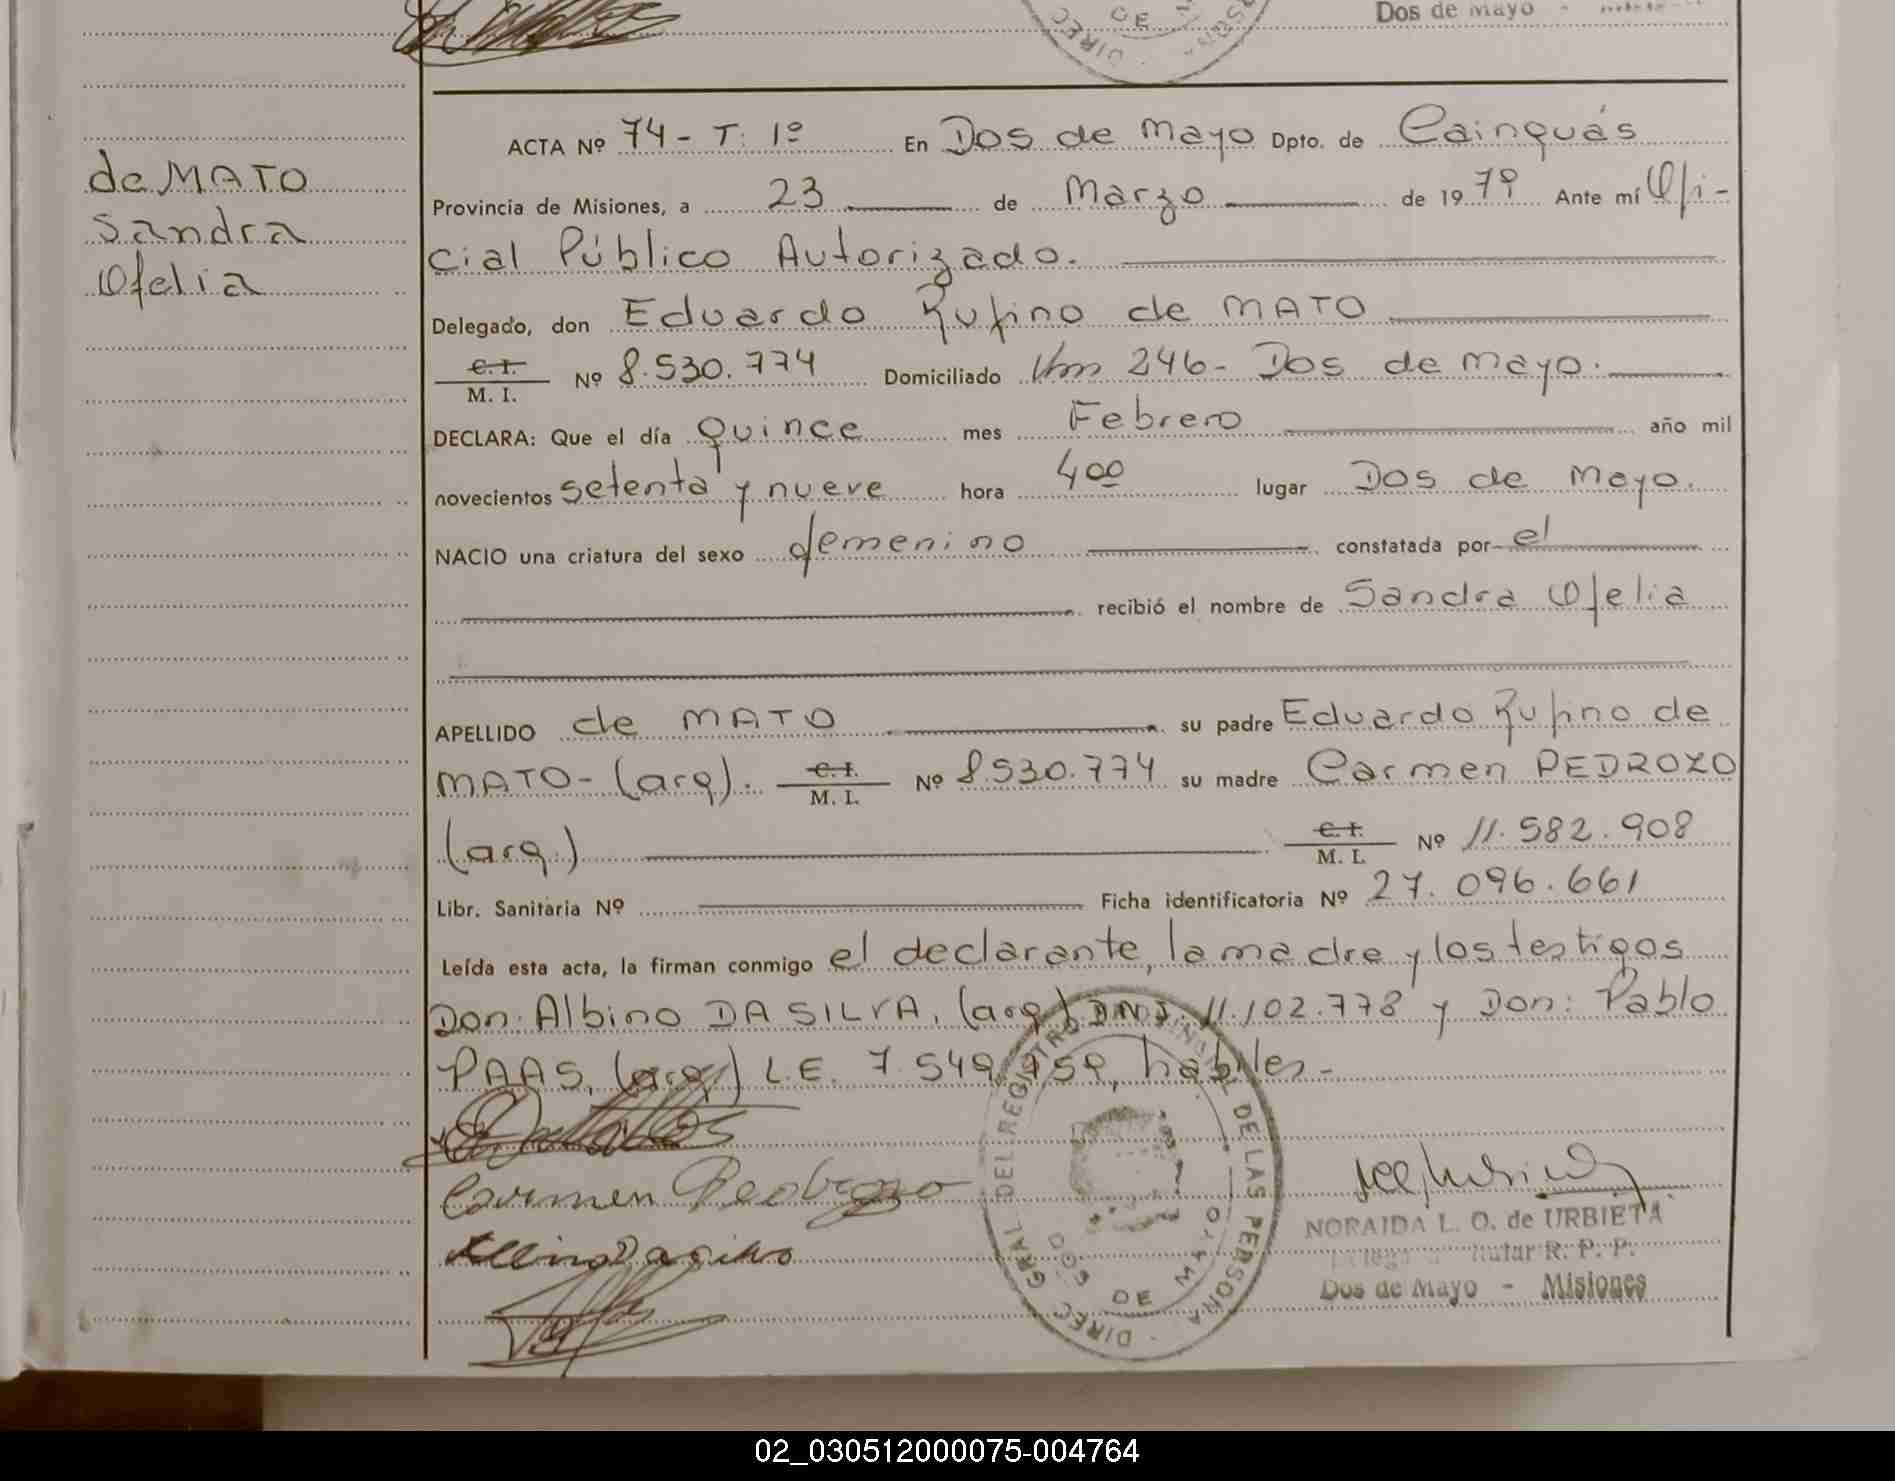 Dos de Mayo -
de MATO
Sandra
Ofelia
ACTA Nº 74 - T: 1º En Dos de Mayo Dpto. de Cainguás
Provincia de Misiones, a 23 de Marzo de 1979 Ante mí Ofi-
cial Público Autorizado.
Delegado, don Eduardo Rufino de MATO
C.I. / M. I. Nº 8.530.774 Domiciliado Km 246 - Dos de Mayo.
DECLARA: Que el día quince mes Febrero año mil
novecientos setenta y nueve hora 4 00 lugar Dos de Mayo.
NACIO una criatura del sexo femenino constatada por el
recibió el nombre de Sandra Ofelia
APELLIDO de MATO su padre Eduardo Rufino de
MATO - (arg). C.I. / M. I. Nº 8.530.774 su madre Carmen PEDROZO
(arg.) C.I. / M. I. Nº 11.582.908
Libr. Sanitaria Nº Ficha identificatoria Nº 27.096.661
Leída esta acta, la firman conmigo el declarante, la madre y los testigos
Don: Albino DA SILVA, (arg) DNI. 11.102.778 y Don: Pablo
PAAS, (arg) L.E. 7.549.959, hábiles -
Carmen Pedrozo
Albino Dasilva
DIREC. GRAL. DEL REGISTRO PROVINCIAL DE LAS PERSONAS
DOS DE MAYO
NORAIDA L. O. de URBIETA
Delegada Titular R. P. P.
Dos de Mayo - Misiones
02_030512000075-004764